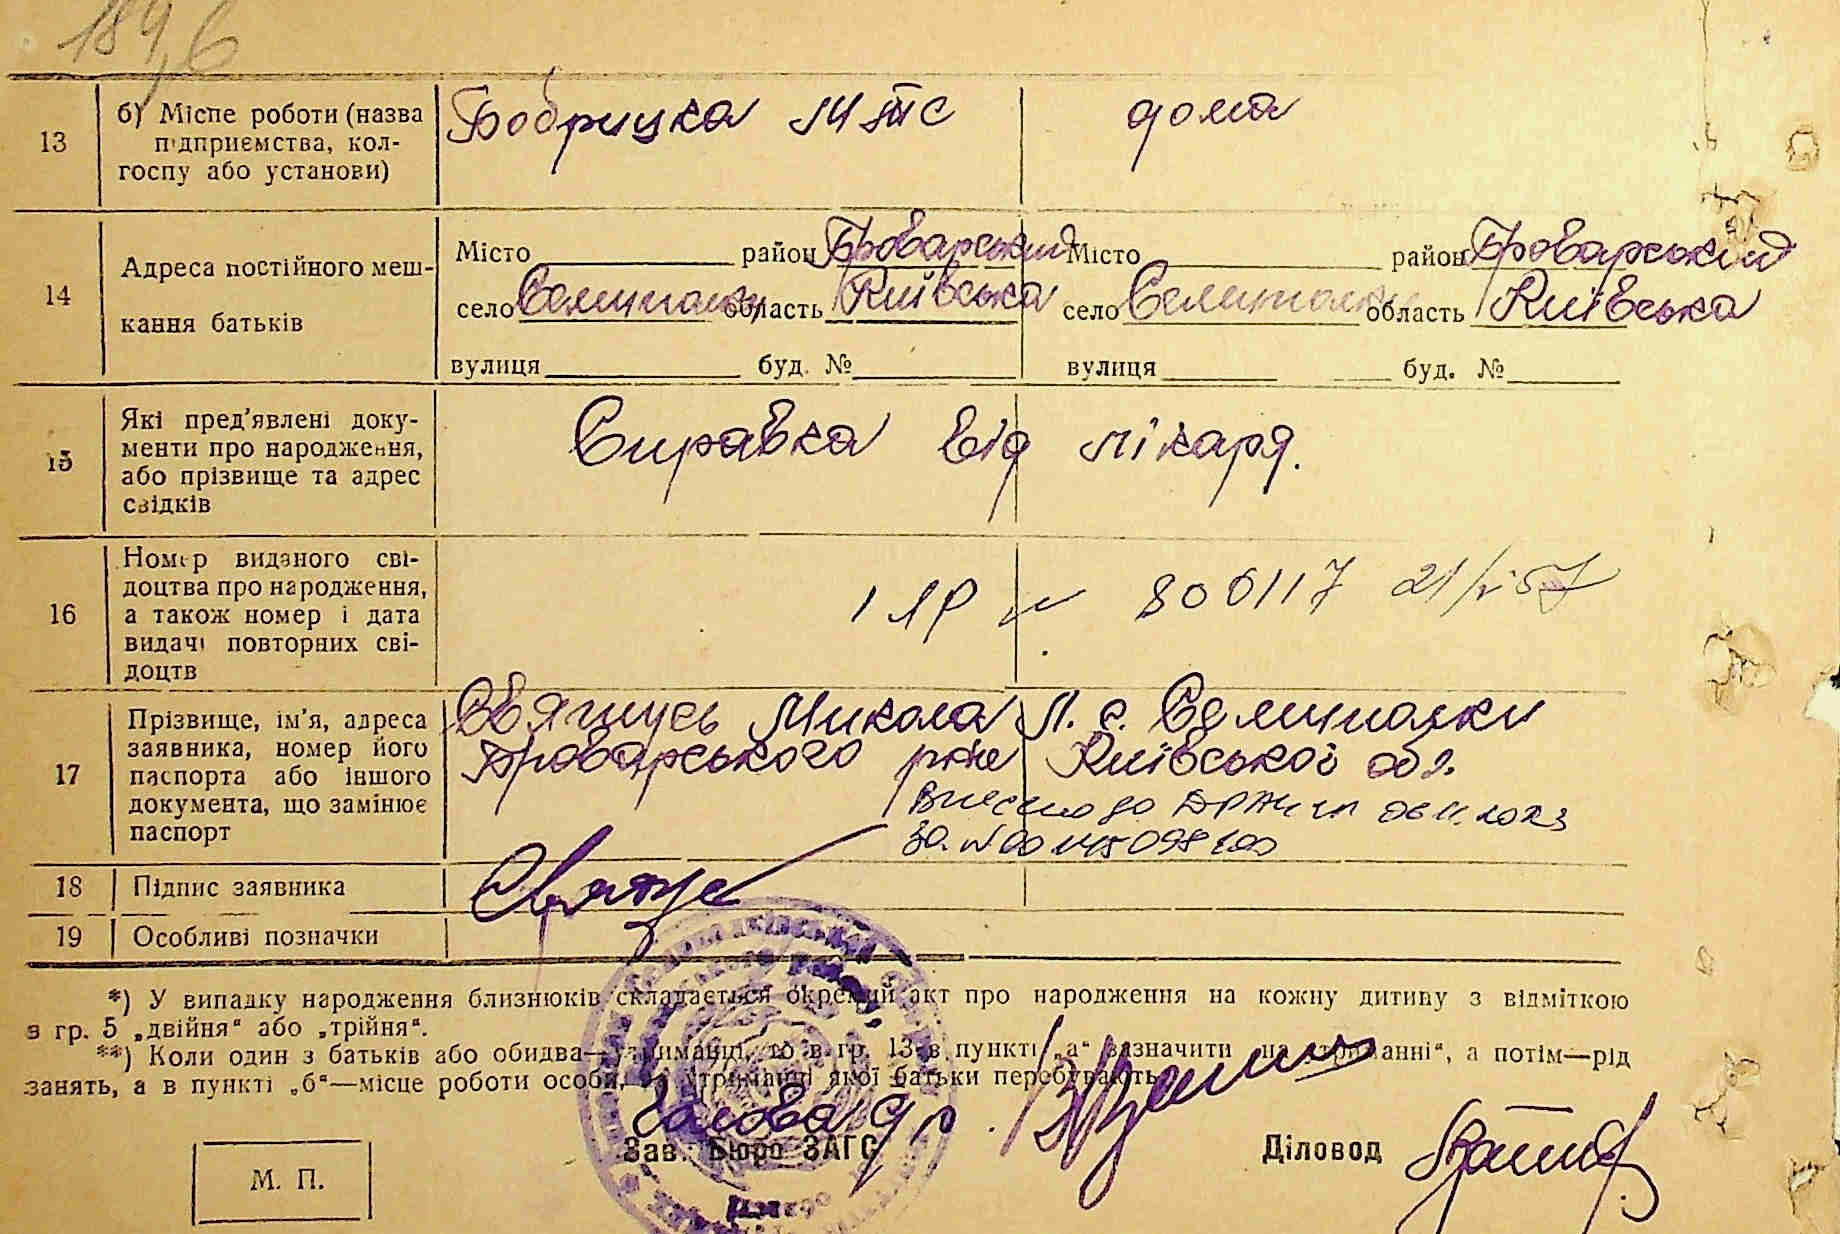 184,6
13 б) Місце роботи (назва підприємства, кол-
госпу або установи)
Бобрицка МТС дома
14 Адреса постійного меш-
кання батьків
Місто район Броварський Місто район Броварський
село Семиполки область Київська село Семиполки область Київська
вулиця буд. № вулиця буд. №
15 Які пред'явлені доку-
менти про народження,
або прізвище та адрес
свідків
Справка від лікаря.
16 Номер виданого сві-
доцтва про народження,
а також номер і дата
видачі повторних сві-
доцтв
800117
17 Прізвище, ім'я, адреса
заявника, номер його
паспорта або іншого
документа, що замінює
паспорт
Микола Л. с. Семиполки
Броварського р-не Київської обл.
Внесено до
18 Підпис заявника
19 Особливі позначки
*) У випадку народження близнюків складається окремий акт про народження на кожну дитину з відміткою
в гр. 5 „двійня“ або „трійня“.
**) Коли один з батьків або обидва—утриманці, то в гр. 13 в пункті „а“ зазначити „на утриманні“, а потім—рід
занять, а в пункті „б“—місце роботи особи, на утриманні якої батьки перебувають.
Голова с/р
Зав. Бюро ЗАГС Діловод
М. П.